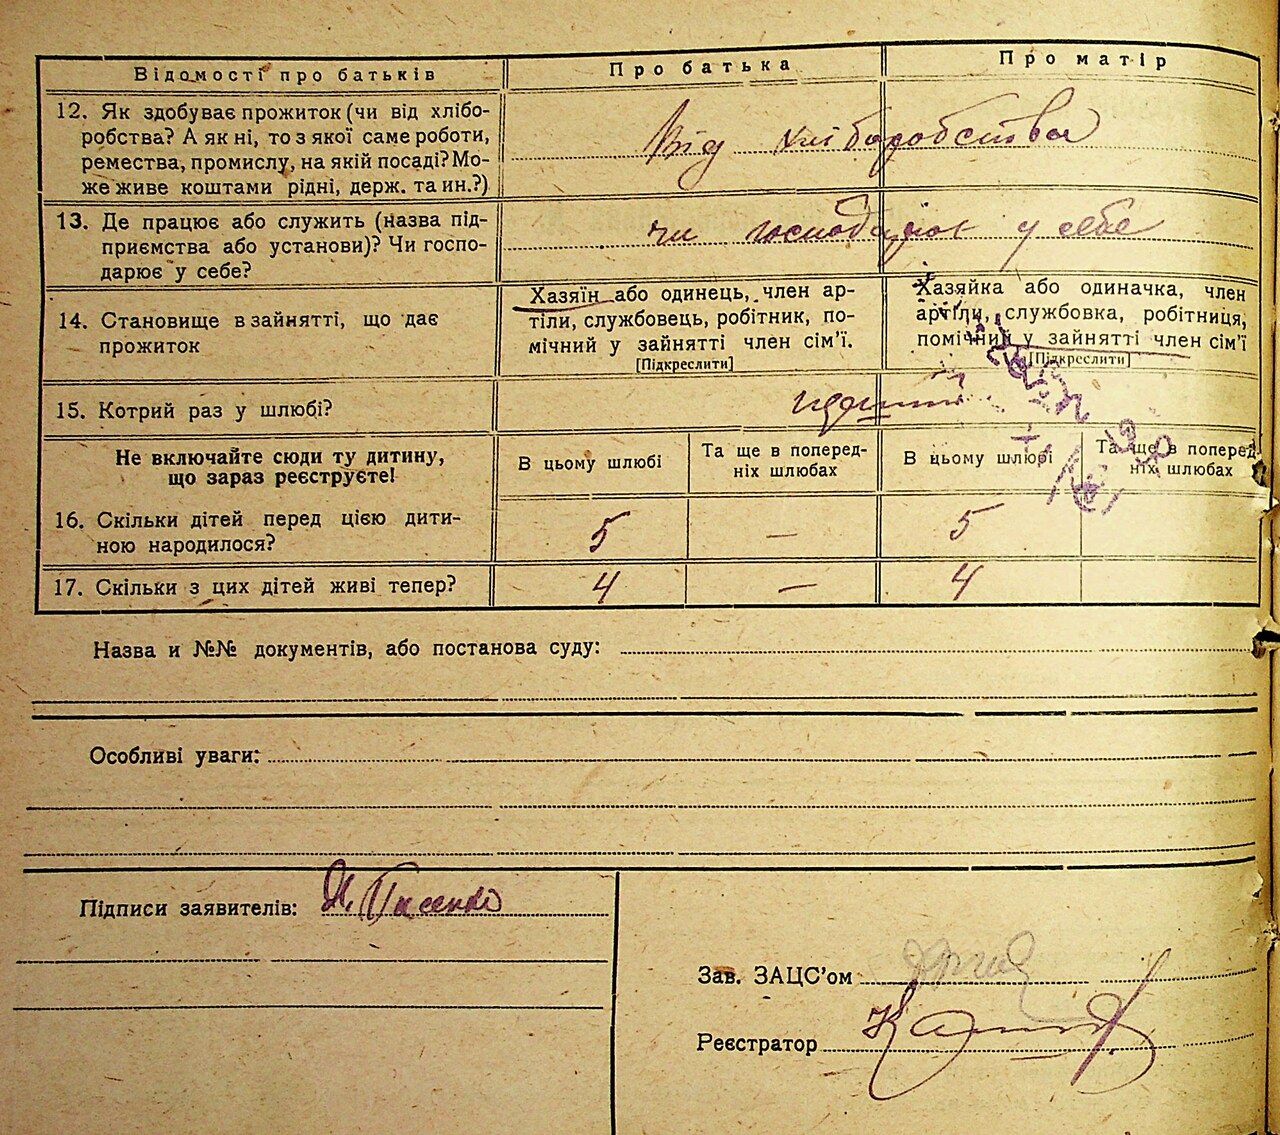 Відомості про батьків
Про батька
Про матір
12. Як здобуває прожиток (чи від хлібо-
робства? А як ні, то з якої саме роботи,
ремества, промислу, на якій посаді? Мо-
же живе коштами рідні, держ. та ин.?)
Від хліборобства
13. Де працює або служить (назва під-
приємства або установи)? Чи госпо-
дарює у себе?
чи господарює у себе
14. Становище в зайнятті, що дає
прожиток
Хазяїн або одинець, член ар-
тіли, службовець, робітник, по-
мічний у зайнятті член сім’ї.
[Підкреслити]
Хазяйка або одиначка, член
артіли, службовка, робітниця,
помічний у зайнятті член сім’ї
[Підкреслити]
15. Котрий раз у шлюбі?
Не включайте сюди ту дитину,
що зараз реєструєте!
В цьому шлюбі
Та ще в поперед-
ніх шлюбах
В цьому шлюбі
Та ще в поперед-
ніх шлюбах
16. Скільки дітей перед цією дити-
ною народилося?
5 — 5
17. Скільки з цих дітей живі тепер?
4 — 4
Назва и №№ документів, або постанова суду:
Особливі уваги:
Підписи заявителів:
Зав. ЗАЦС’ом
Реєстратор